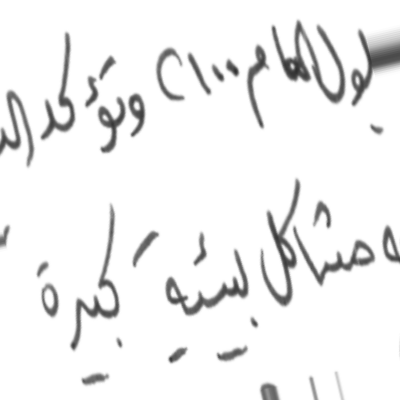 بحلول العام ٢١٠٠ وتؤكد
مشاكل بيئية كبيرة